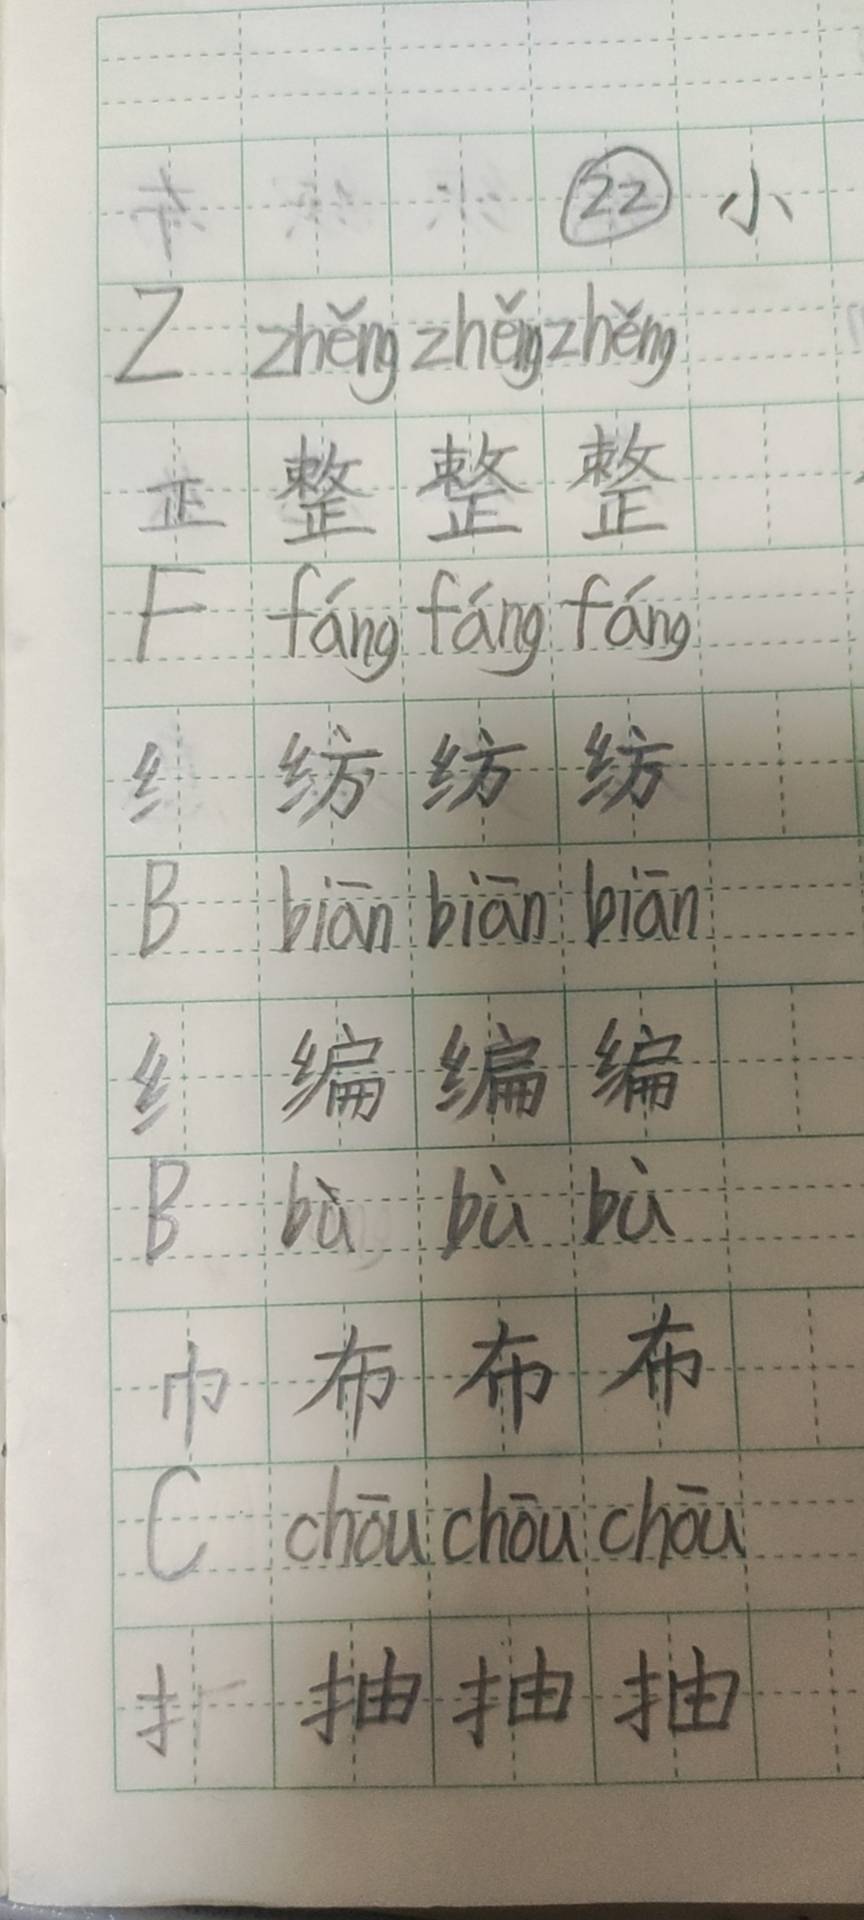 ㉒ 小
Z zhěng zhěng zhěng
正 整 整 整
F fáng fáng fáng
纟 纺 纺 纺
B biān biān biān
纟 编 编 编
B bù bù bù
巾 布 布 布
C chōu chōu chōu
扌 抽 抽 抽